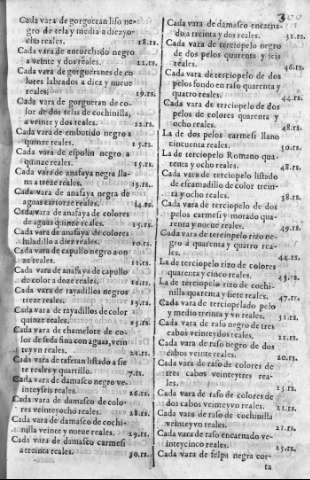 Cada vara de gorgueran liso ne-
gro de tela y media a diez y o-
cho reales. 18.rs.
Cada vara de enterchido negro
a veinte y dos reales. 22.rs.
Cada vara de gorgueranes de co
lores labrados a diez y nueue
reales. 19.rs.
Cada vara de gorgueran de co-
lor de dos telas de cochinilla,
a veinte y dos reales. 22.rs.
Cada vara de embutido negro a
quinze reales. 15.rs.
Cada vara de espolin negro a
quinze reales. 15.rs.
Cada vara de anafaya negra lla-
na a treze reales. 13.rs.
Cada vara de anafaya negra de
aguas catorze reales. 14.rs.
Cada vara de anafaya de colores
de aguas quinze reales. 15.rs.
Cada vara de anafaya de colores
hiladillo a diez reales. 10.rs.
Cada vara de capullo negro a on-
ze reales. 11.rs.
Cada vara de anafaya de capullo
de color a doze reales.
Cada vara de rayadillos negros
treze reales. 13.rs.
Cada vara de rayadillos de color
quinze reales. 15.rs.
Cada vara de chamelote de co-
lor de seda fina con aguas, vein
te y vn reales. 21.rs.
Cada vara de tafetan listado a sie
te reales y quartillo. 7.rs.
Cada vara de damasco negro ve-
inte y seis reales. 26.rs.
Cada vara de damasco de colo-
res veinte y ocho reales. 28.rs.
Cada vara de damasco de cochi-
nilla veinte y nueue reales. 29.rs.
Cada vara de damasco carmesi
a treinta reales. 30.rs.
Cada vara de damasco encarna-
do a treinta y dos reales. 32.rs.
Cada vara de terciopelo negro
de dos pelos quarenta y seis
reales. 46.rs.
Cada vara de terciopelo de dos
pelos fondo en raso quarenta y
quatro reales. 44.rs.
Cada vara de terciopelo de dos
pelos de colores quarenta y
ocho reales. 48.rs.
La de dos pelos carmesi llano
cincuenta reales. 50.rs.
La de terciopelo Romano qua-
renta y ocho reales. 48.rs.
Cada vara de terciopelo listado
de escamadillo de color trein-
ta y ocho reales. 38.rs.
Cada vara de terciopelo de dos
pelos carmesi y morado qua-
renta y nueue reales. 49.rs.
Cada vara de terciopelo rizo ne-
gro a quarenta y quatro rea-
les. 44.rs.
La de terciopelo rizo de colores
quarenta y cinco reales. 45.rs.
La de terciopelo rizo de cochi-
nilla quarenta y siete reales. 47.rs.
Cada vara de terciopelado pelo
y medio treinta y vn reales. 31.rs.
Cada vara de raso negro de tres
cabos veinte y dos reales. 22.rs.
Cada vara de raso negro de dos
cabos veinte reales. 20.rs.
Cada vara de raso de colores de
tres cabos veinte y tres rea-
les. 23.rs.
Cada vara de raso de colores de
dos cabos veinte y vn reales. 21.rs.
Cada vara de raso de cochinilla
veinte y vn reales. 21.rs.
Cada vara de raso encarnado ve-
inte y cinco reales. 25.rs.
Cada vara de felpa negra cor-
ta